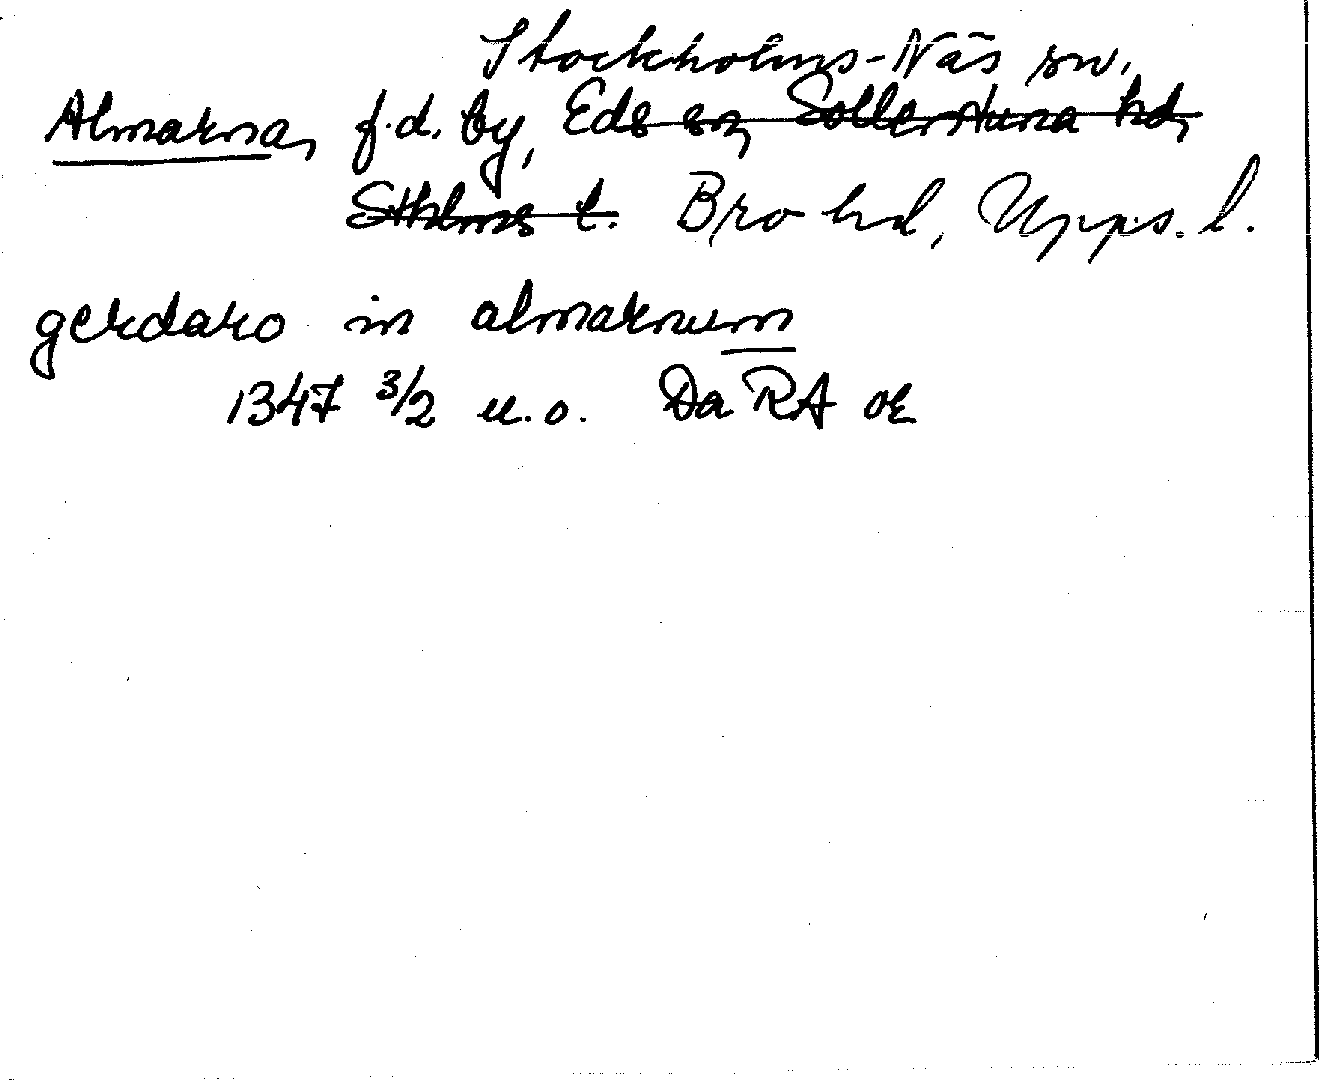 Stockholms-Näs sn.
Almarna, f.d. by, Eds sn, Sollentuna hd,
Sthlms l. Bro hd, Upps. l.
gerdaro in almarnum
1347 3/2 u.o. Da RA or